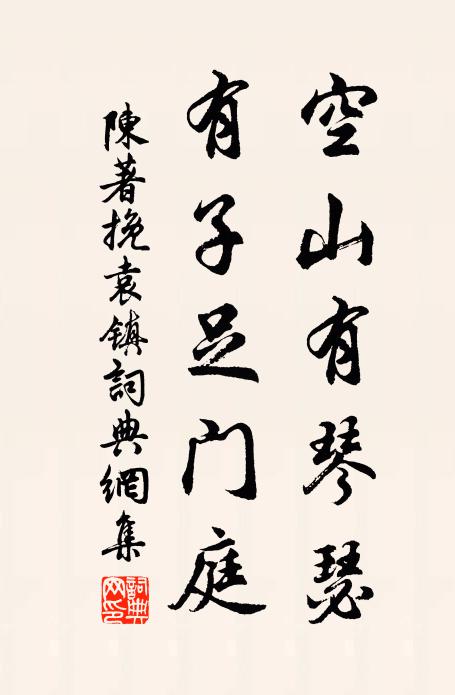 空山有琴瑟
有子足门庭
陳著挽袁鎮詞典網集
詞典网印